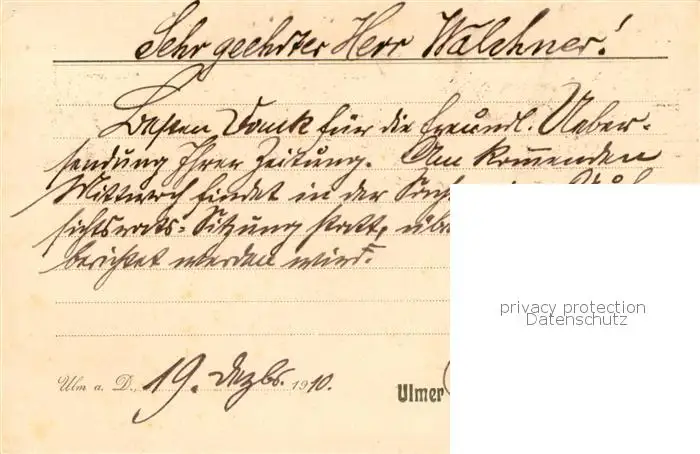 Sehr geehrter Herr Walchner!
Besten Dank für die freundl. Ueber-
sendung Ihrer Zeitung. Am kommenden
Mittwoch findet in der
sichtsrats-Sitzung statt,
berichtet werden wird.
privacy protection
Datenschutz
Ulm a. D., 19. Dezbr. 1910.
Ulmer